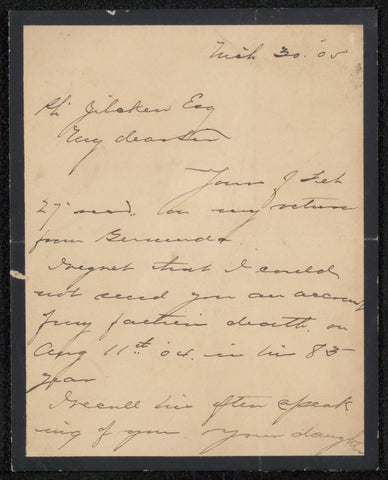 Mch 30. '05
Ph. Zilcken Esq
My dear Sir
Yours of Feb
27 recd. on my return
from Bermuda.
I regret that I could
not send you an account
of my father's death. on
Aug 11th '04. in his 83
year
I recall his often speak
ing of you & your daughter